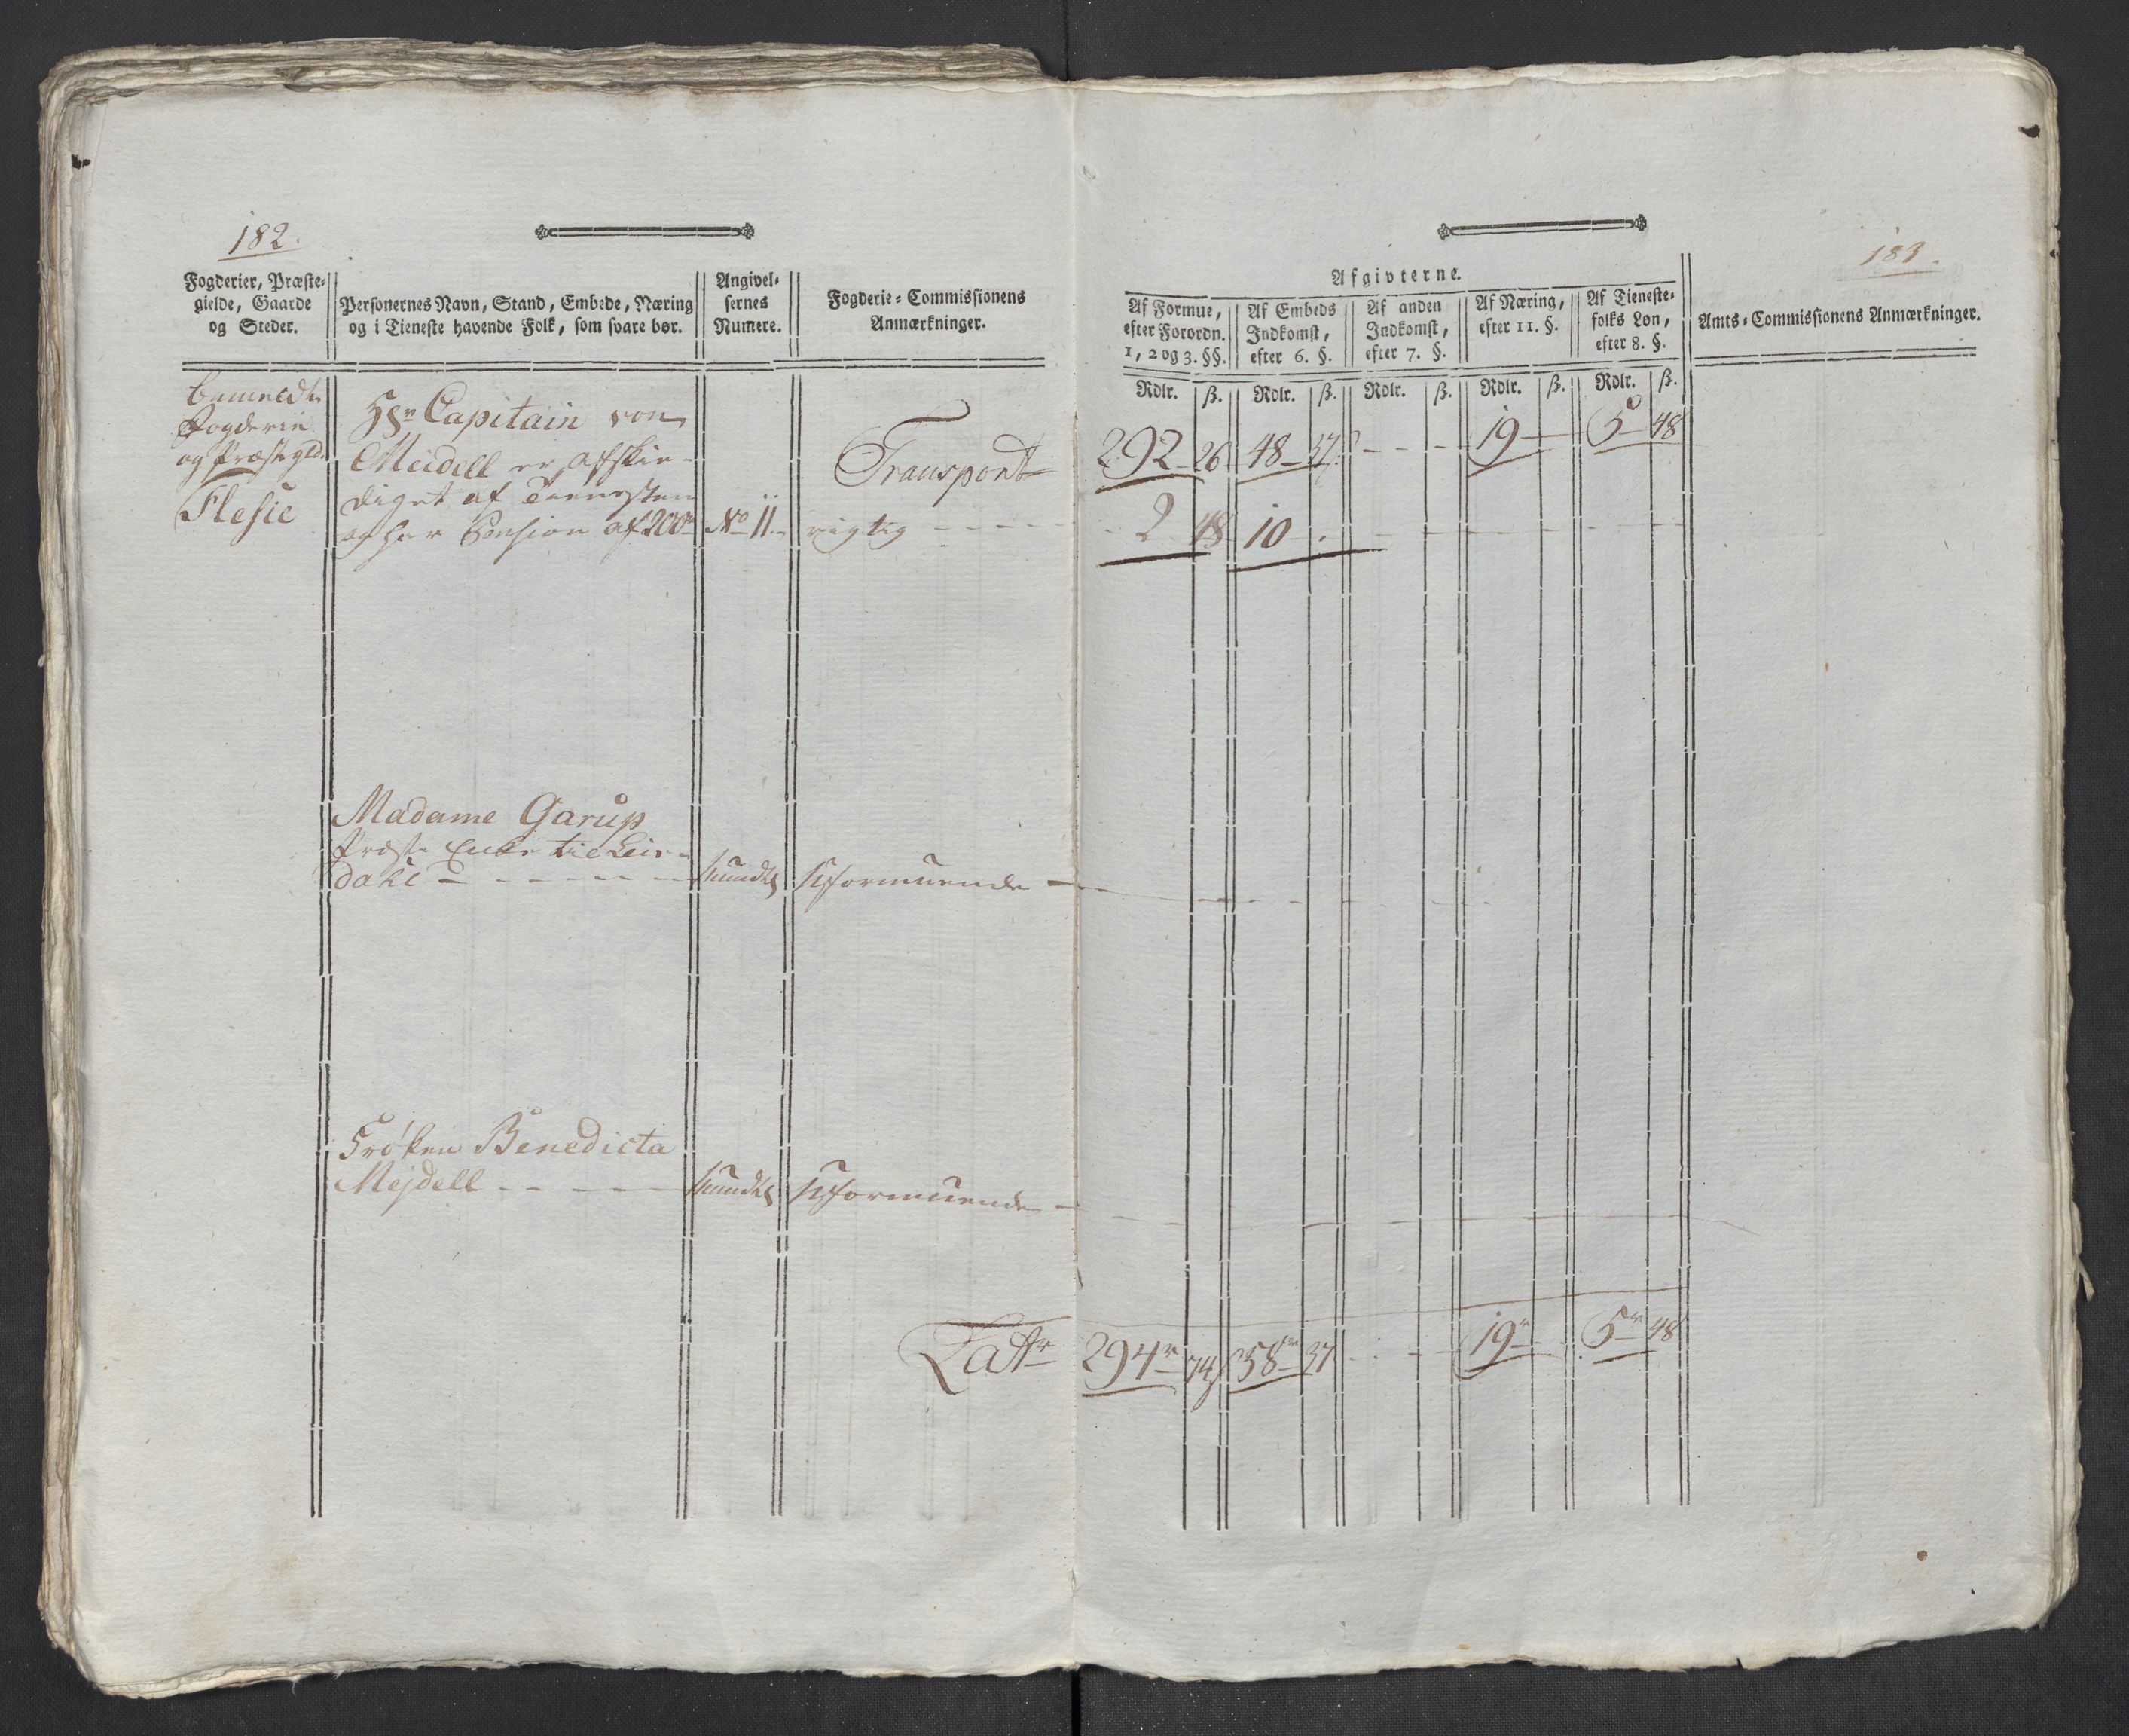 182.
Fogderier, Præste-
gielde, Gaarde
og Steder.
Personernes Navn, Stand, Embede, Næring
og i Tieneste havende Folk, som svare bør.
Angivel-
sernes
Numere.
Fogderie-Commissionens
Anmærkninger.
bemeldte
Fogderie
og Præstegld.
Slesie
Hr. Capitain von
Meidell er afskee-
diget af Tienesten
og har Pension af 200 No 11. rigtig
Transport
Madame Garup
Præste Enke til Leir-
dahl mundtl. Uformuende
Frøken Benedicta
Mejdell mundtl. Uformuende
Latr
183.
Afgivterne.
Af Formue,
efter Forordn.
1, 2 og 3. §§.
Af Embeds
Indkomst,
efter 6. §.
Af anden
Indkomst,
efter 7. §.
Af Næring,
efter 11. §.
Af Tieneste-
folks Løn,
efter 8. §.
Amts-Commissionens Anmærkninger.
Rdlr. ß. Rdlr. ß. Rdlr. ß. Rdlr. ß. Rdlr. ß.
292 26 48 37 19 5 48
2 48 10
294 74 58 37 19 5 48